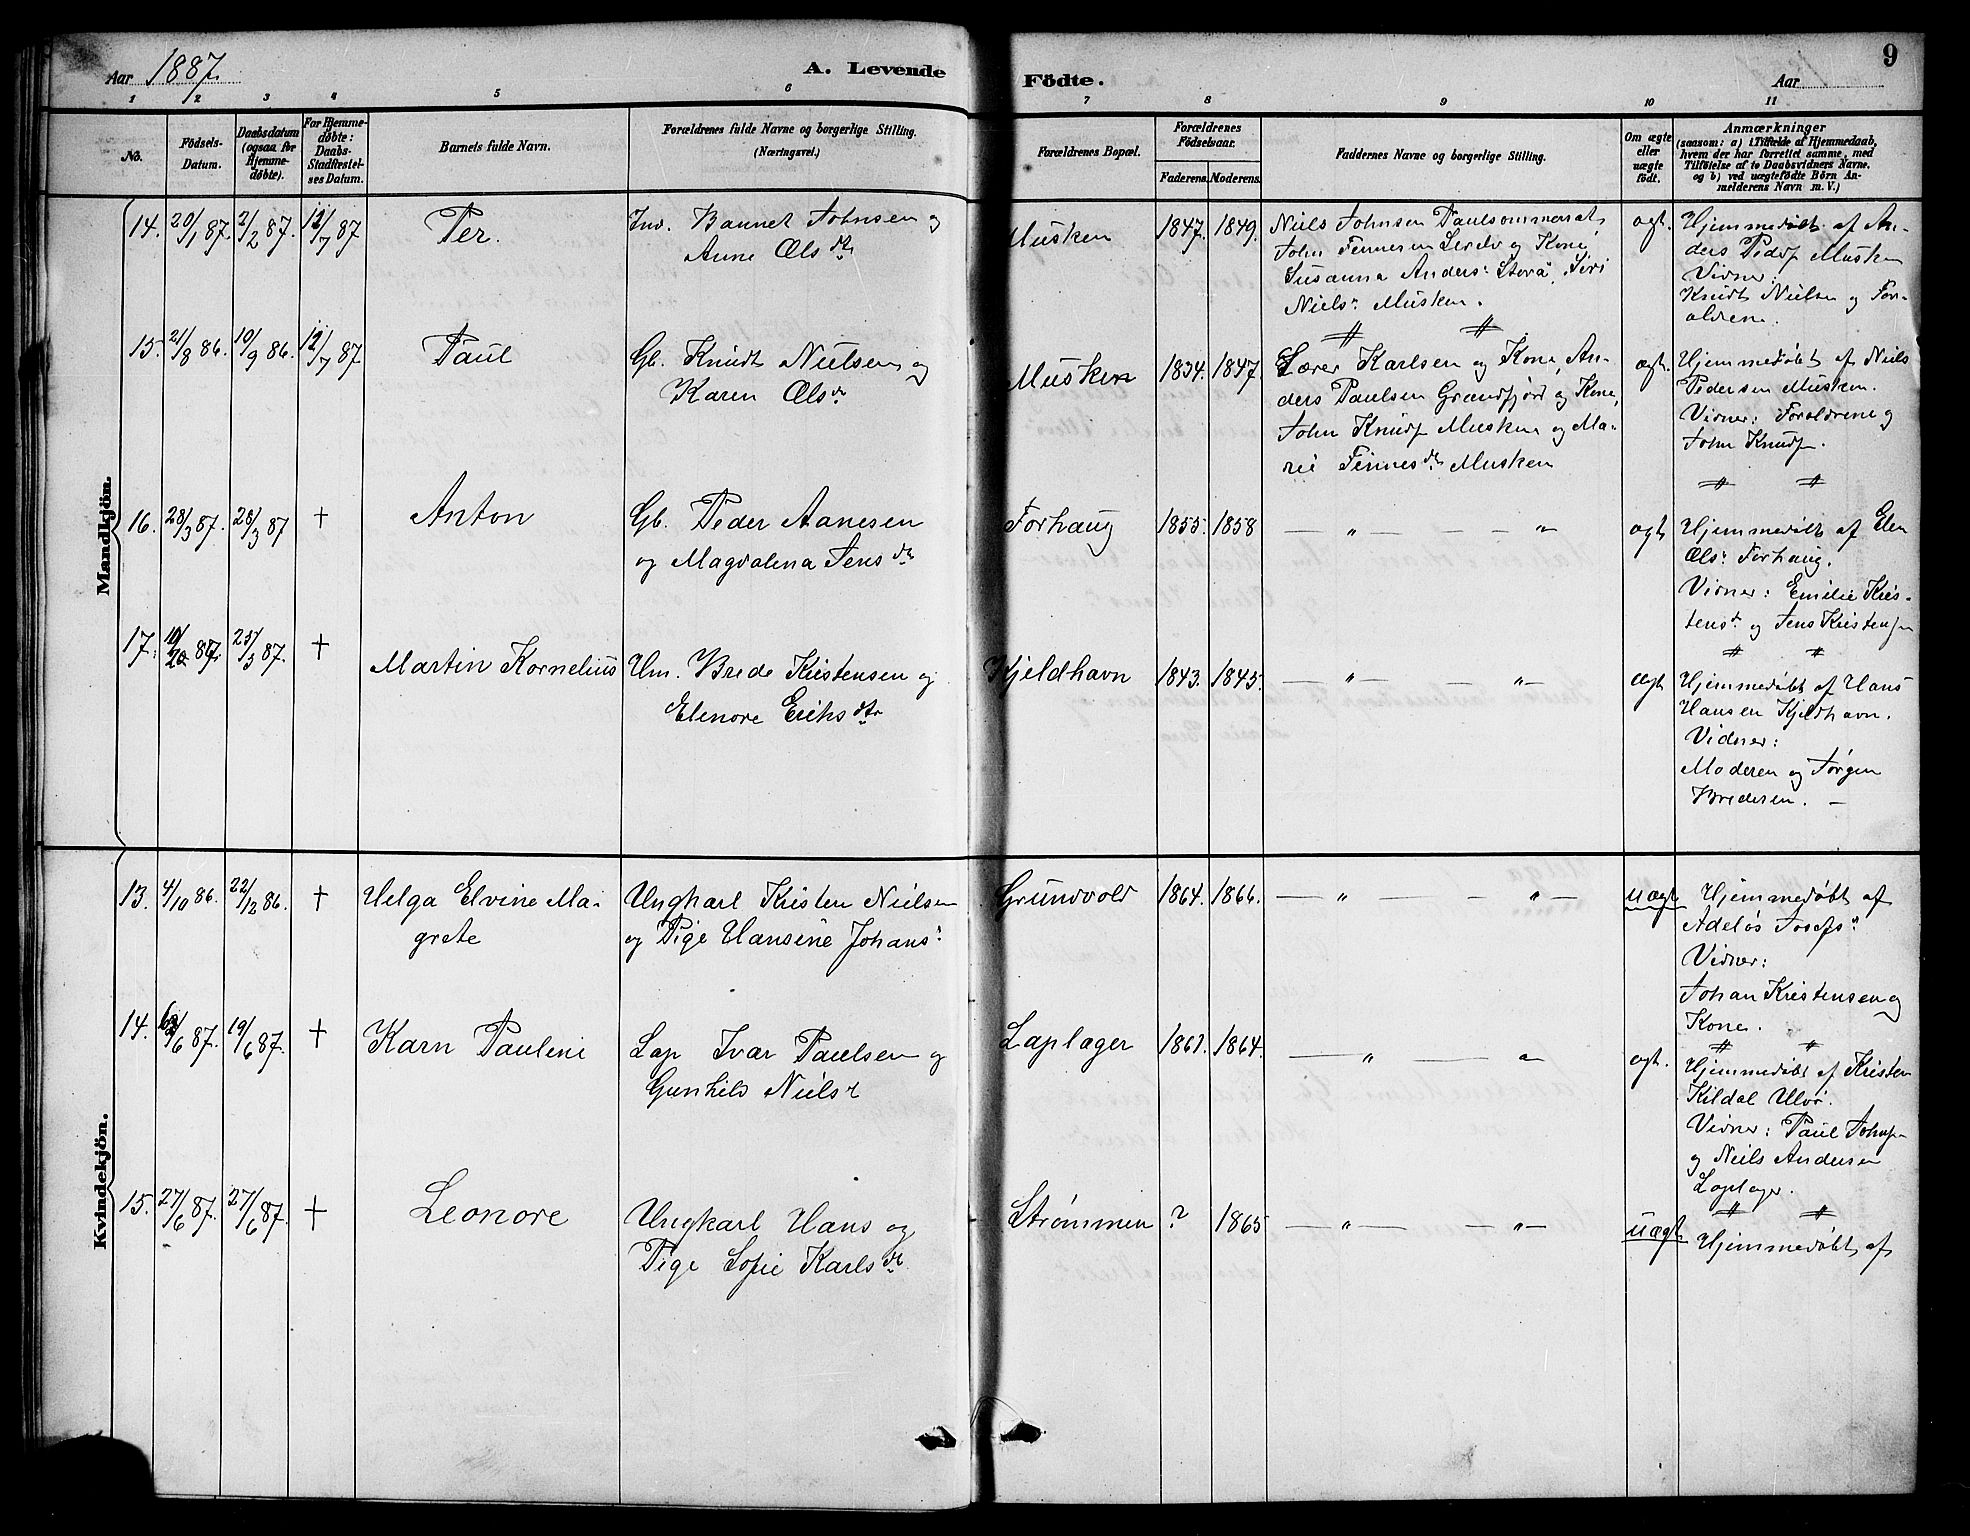 Aar 1887.
A. Levende
Födte.
Aar
9
1 2 3 4 5 6 7 8 9 10 11
No.
Födsels-
Datum.
Daabsdatum
(ogsaa for
Hjemme-
døbte).
For Hjemme-
døbte:
Daabs-
Stadfæstel-
ses Datum.
Barnets fulde Navn.
Forældrenes fulde Navne og borgerlige Stilling.
(Næringsvei.)
Forældrenes Bopæl.
Forældrenes
Födselsaar.
Faderens. Moderens.
Faddernes Navne og borgerlige Stilling.
Om ægte
eller
uægte
født.
Anmærkninger
(saasom: a) i Tilfælde af Hjemmedaab,
hvem der har forrettet samme, med
Tilföielse af to Daabsvidners Navne.
og b) ved uægtefödte Börn An-
melderens Navn m. V.)
Mandkjön.
14. 20/1 87. 2/2 87. 12/7 87
Per.
Inv. Bannet Johnsen og
Anne Ols dtr
Musken 1847. 1849.
Niels Johnsen
John Finnesen og Kone,
Susanna Anders: Storå, Siri
Niels: Musken.
ægt.
Hjemmedøbt af An-
ders Peders Musken
Vidner:
Knudt Nielsen og For-
ældrene.
15. 21/8 86. 10/9 86. 12/7 87
Paul
Gb. Knudt Nielsen og
Karen Ols dr
Musken 1834. 1847.
Lærer Karlsen og Kone, An-
ders Paulsen Grundfjord og Kone,
John Knuds Musken og Ma-
rie Finnes dtr Musken
ægt.
Hjemmedøbt af Niels
Pedersen Musken.
Vidner: Forældrene og
John Knuds.
16. 28/3 87. 28/3 87 +
Anton
Gb. Peder Aanesen
og Magdalena Jens dtr
Forhaug 1855. 1858 — „ — — „
ægt
Hjemmedøbt af Elen
Ols: Forhaug.
Vidner: Emilie Kris-
tens dr og Jens Kristens
17. 87. 25/3 87. +
Martin Kornelius
Um. Brede Kristensen og
Elenore Eriks dtr
Kjeldhavn 1843. 1845. — „ — — „ —
ægt
Hjemmedøbt af Hans
Hansen Kjeldhavn.
Vidner:
Moderen og Jørgen
Bredesen. —
Kvindekjön.
13. 4/10 86. 22/12 86. +
Helga Elvine Ma-
grete
Ungkarl Kristen Nielsen
og Pige Hansine Johans:
Grundvold 1864. 1866. — „ — — „ —
uægt
Hjemmedøbt af
Adeløs Josefs:
Vidner:
Johan Kristensen og
Kone.
14. 87. 19/6 87. +
Karn Pauline
Lap Ivar Paulsen og
Gunhild Niels d
Laplager 1861. 1864. — „ — „
ægt.
Hjemmedøbt af Kristen
Kildal Ulvø.
Vidner: Paul Johns
og Niels Andersen
Laplager.
15. 27/6 87. 27/6 87. +
Leonore
Ungkarl Hans og
Pige Sofie Karls dr
Strømmen ? 1865 — „ — — „ —
uægt.
Hjemmedøbt af